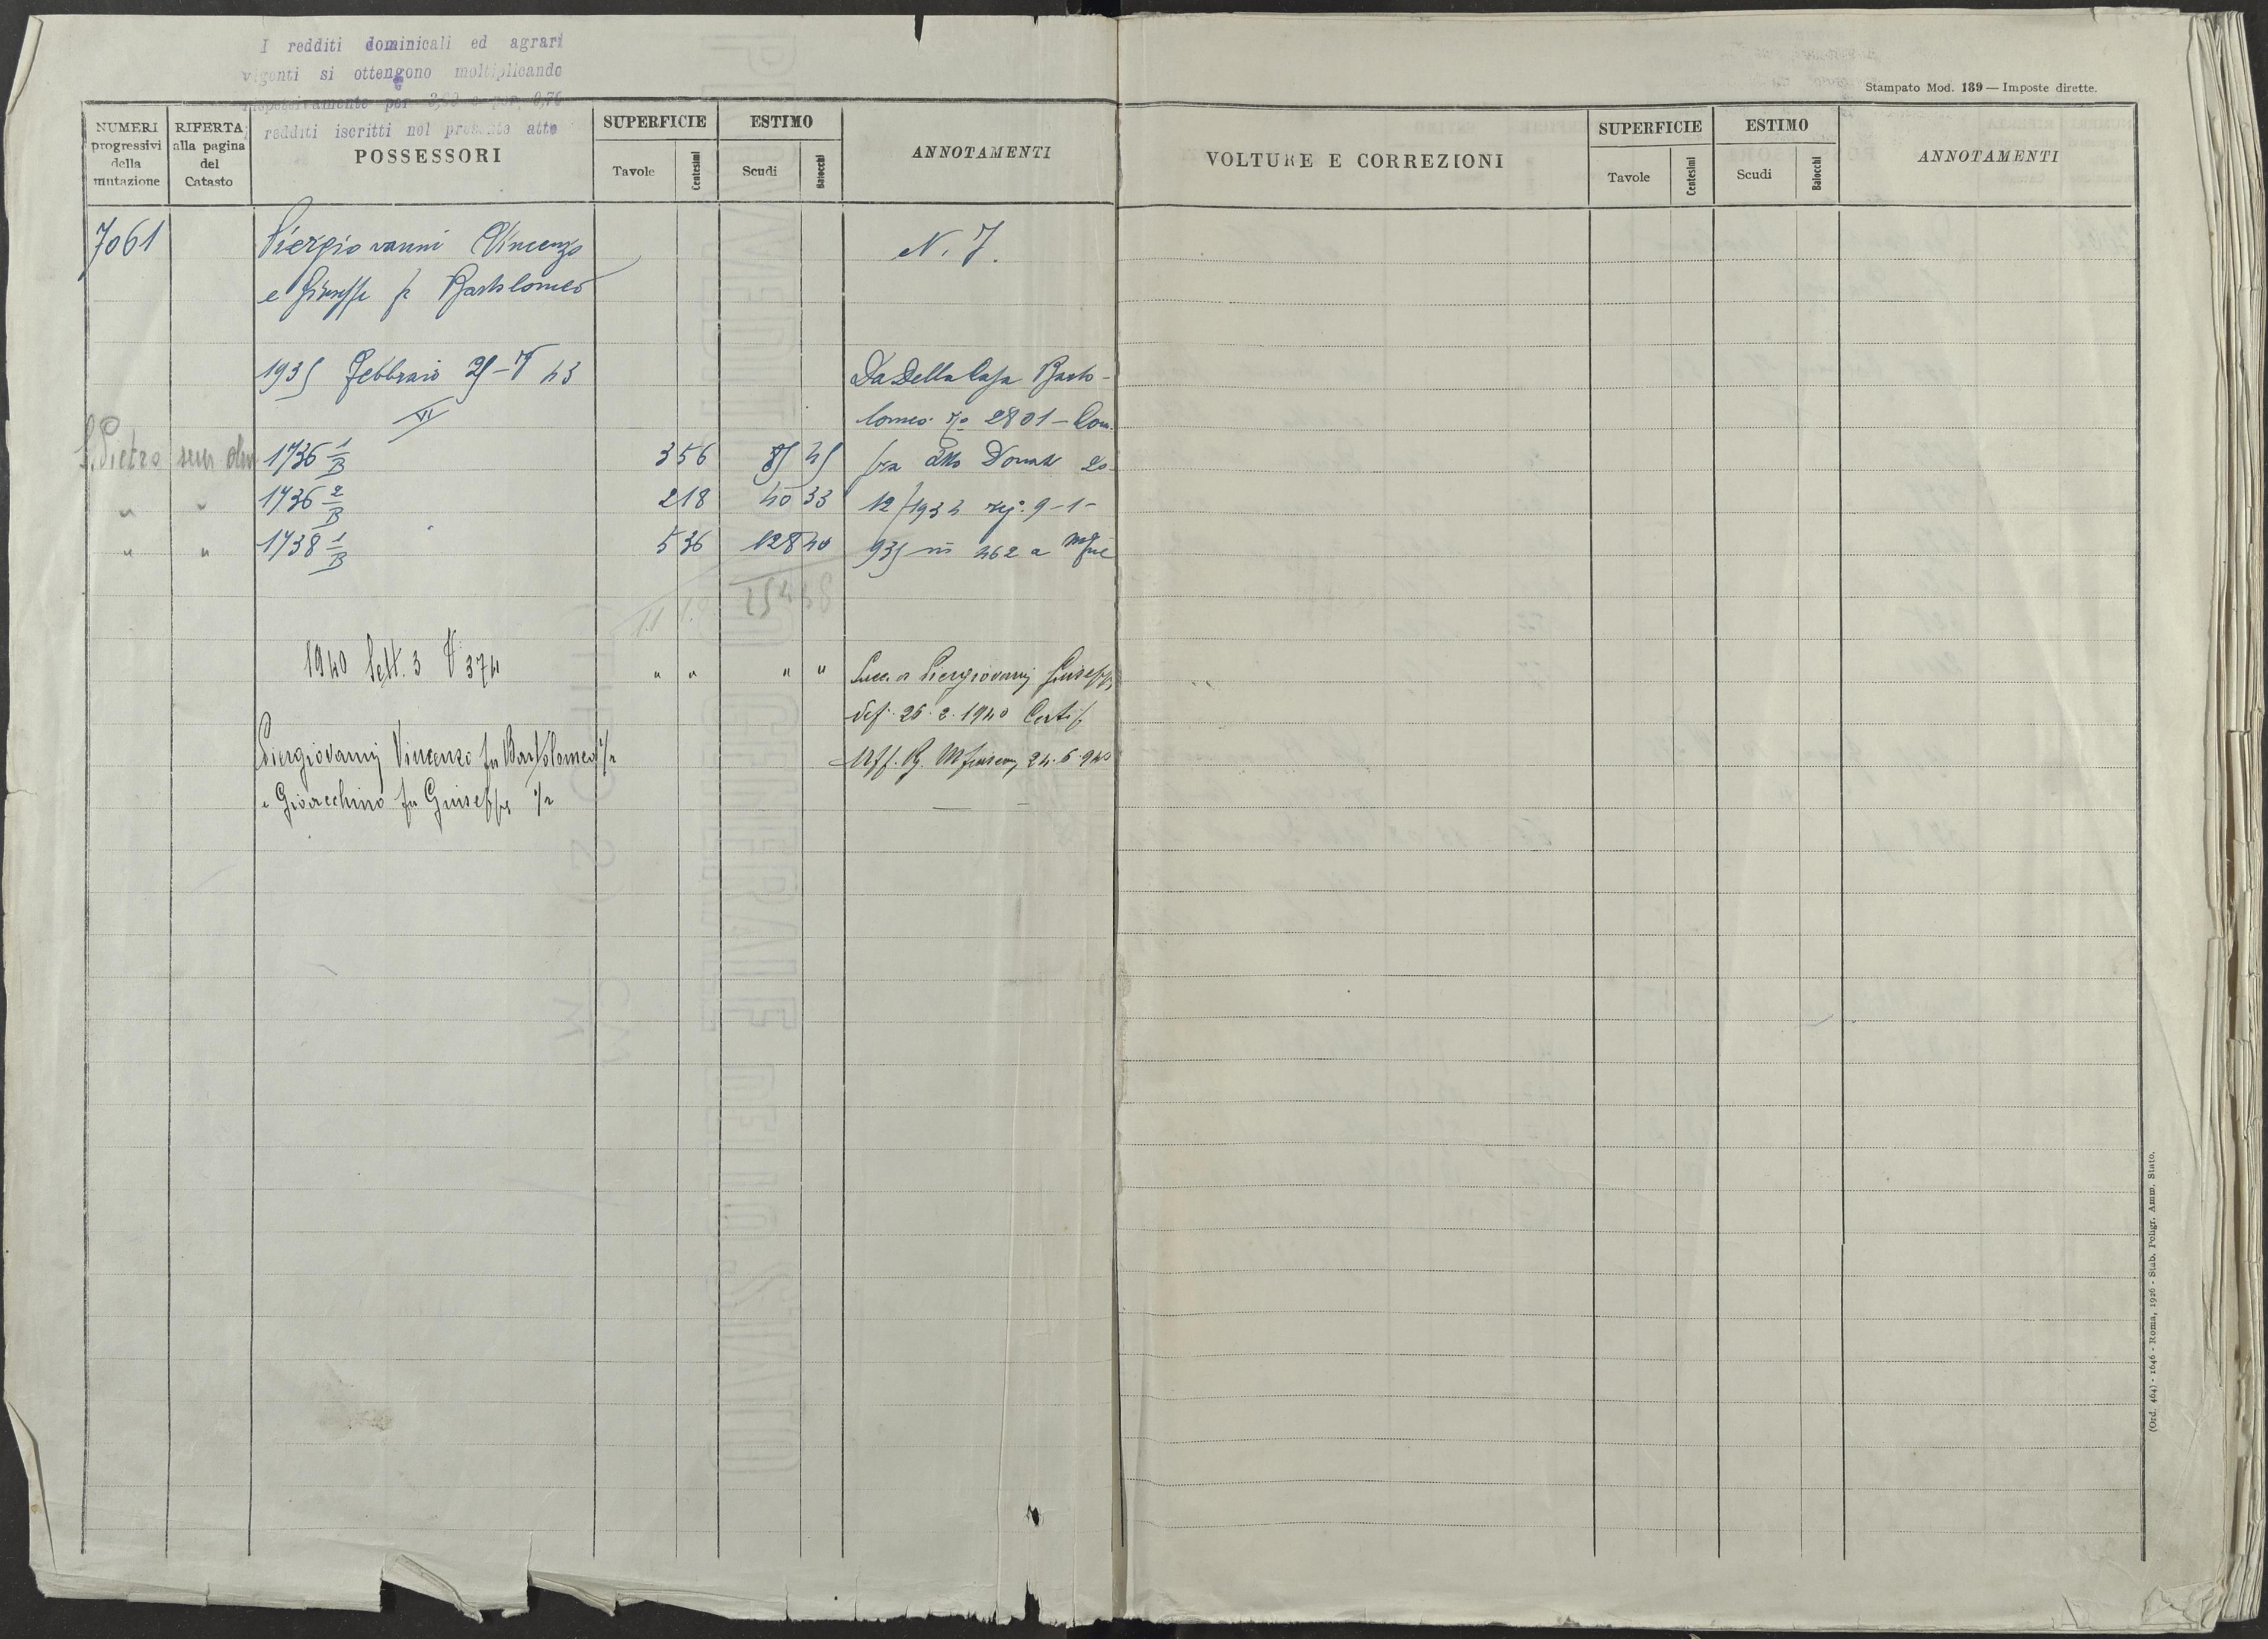 I redditi dominicali ed agrari
vigenti si ottengono moltiplicando
rispettivamente per 3,00 e per 0,76
i redditi iscritti nel presente atto
Stampato Mod. 139 — Imposte dirette.
NUMERI progressivi della mutazione
RIFERTA alla pagina del Catasto
POSSESSORI
SUPERFICIE
Tavole Centesimi
ESTIMO
Scudi Baiocchi
ANNOTAMENTI
VOLTURE E CORREZIONI
SUPERFICIE
Tavole Centesimi
ESTIMO
Scudi Baiocchi
ANNOTAMENTI
7061 Piergiovanni Vincenzo N. 7.
e Giuseppe fu Bartolomeo
1935 Febbraio 25 - V 43 Da Della Casa Barto-
lomeo 2801 - Com.
S. Pietro 1736 1/B 3 56 85 45 Donati 20-
" " 1736 2/B 2 18 40 33 12/1934 reg. 9-1-
" " 1738 1/B 5 36 128 40 935 n 462 a
11 1 254 18
1940 Sett. 3 V 374 " " " " Succ. a Piergiovanni Giuseppe
def. 26.2.1940 Certif.
Piergiovanni Vincenzo fu Bartolomeo 1/2 Uff. Rg. 24.6.940
e Gioacchino fu Giuseppe 1/2
PROVVEDITORATO GENERALE DELLO STATO
(Ord. 464) - 1646 - Roma, 1926 - Stab. Poligr. Amm. Stato.